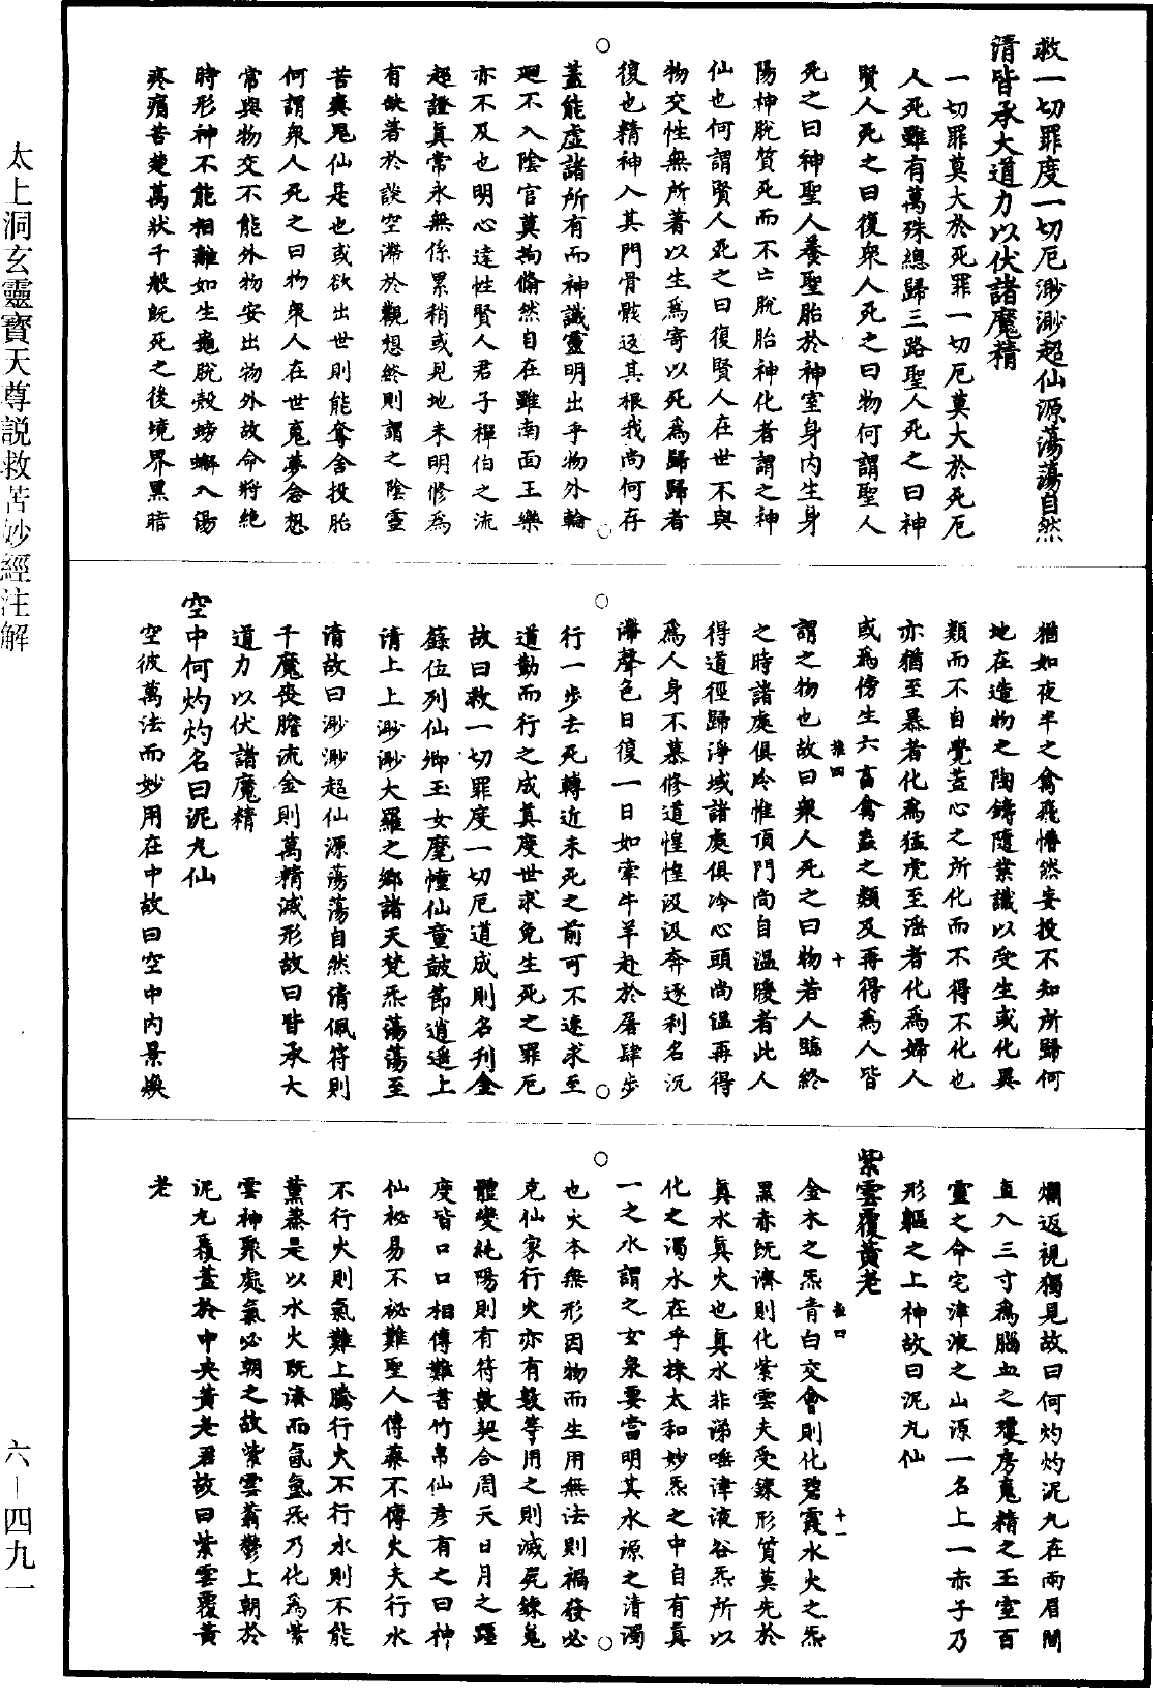 救一切罪度一切厄渺渺超仙源蕩蕩自然
清皆承大道力以伏諸魔精
一切罪莫大於死罪一切厄莫大於死厄
人死雖有萬殊總歸三路聖人死之曰神
賢人死之曰復衆人死之曰物何謂聖人
死之曰神聖人養聖胎於神室身內生身
陽神脫質死而不亡脫胎神化者謂之神
仙也何謂賢人死之曰復賢人在世不與
物交性無所著以生爲寄以死爲歸歸者
復也精神入其門骨骸返其根我尚何存
蓋能虛諸所有而神識靈明出乎物外輪
廻不入陰官莫拘翛然自在雖南面王樂
亦不及也明心達性賢人君子禪伯之流
超證眞常永無係累稍或見地未明修爲
有缺著於談空滯於觀想終則謂之陰靈
苦爽鬼仙是也或欲出世則能奪舍投胎
何謂衆人死之曰物衆人在世寃夢念想
常與物交不能外物安出物外故命將絕
時形神不能相離如生龜脫殼螃蠏入湯
疼痛苦楚萬狀千般旣死之後境界黑暗
猶如夜半之禽飛㦬然妄投不知所歸何
地在造物之陶鑄隨業識以受生或化異
類而不自覺蓋心之所化而不得不化也
亦猶至暴者化爲猛虎至淫者化爲婦人
或爲傍生六畜禽蟲之類及再得爲人皆
謂之物也故曰衆人死之曰物若人臨終
之時諸處俱冷惟頂門尚自溫暖者此人
得道徑歸淨域諸處俱冷心頭尚溫再得
爲人身不慕修道惶惶汲汲奔逐利名沉
滯聲色日復一日如牽牛羊赴於屠肆步
行一步去死轉近未死之前可不速求至
道勤而行之成眞度世求免生死之罪厄
故曰救一切罪度一切厄道成則名刋金
籙伍列仙卿玉女麾幢仙童鼓節逍遥上
清上上渺渺大羅之鄉諸天梵炁蕩蕩至
清故曰渺渺超仙源蕩蕩自然清佩符則
千魔喪膽流金則萬精滅形故曰皆承大
道力以伏諸魔精
空中何灼灼名曰泥丸仙
空彼萬法而妙用在中故曰空中內景煥
爛返視獨見故曰何灼灼泥丸在兩眉間
直入三寸爲腦血之瓊房䰟精之玉室百
靈之命宅津液之山源一名上一赤子乃
形軀之上神故曰泥丸仙
紫雲覆黃老
金木之炁青白交會則化碧霞水火之炁
黑赤旣濟則化紫雲夫受鍊形質莫先於
眞水眞火也眞水非涕唾津液谷炁所以
化之濁水在乎採太和妙炁之中自有眞
一之水謂之玄泉要當明其水源之清濁
也火本無形因物而生用無法則禍發必
克仙家行火亦有數等用之則滅尸鍊䰟
體變純陽則有符數契合周天日月之躔
度皆口口相傳難書竹帛仙彥有之曰神
仙祕易不祕難聖人傳藥不傳火夫行水
不行火則氣難上騰行火不行水則不能
薰蒸是以水火旣濟而氤氳炁乃化爲紫
雲神聚處氣必朝之故紫雲蓊鬱上朝於
泥丸覆蓋於中央黃老君故曰紫雲覆黃
老
太上洞玄靈寶天尊説救苦妙經注解
六—四九一